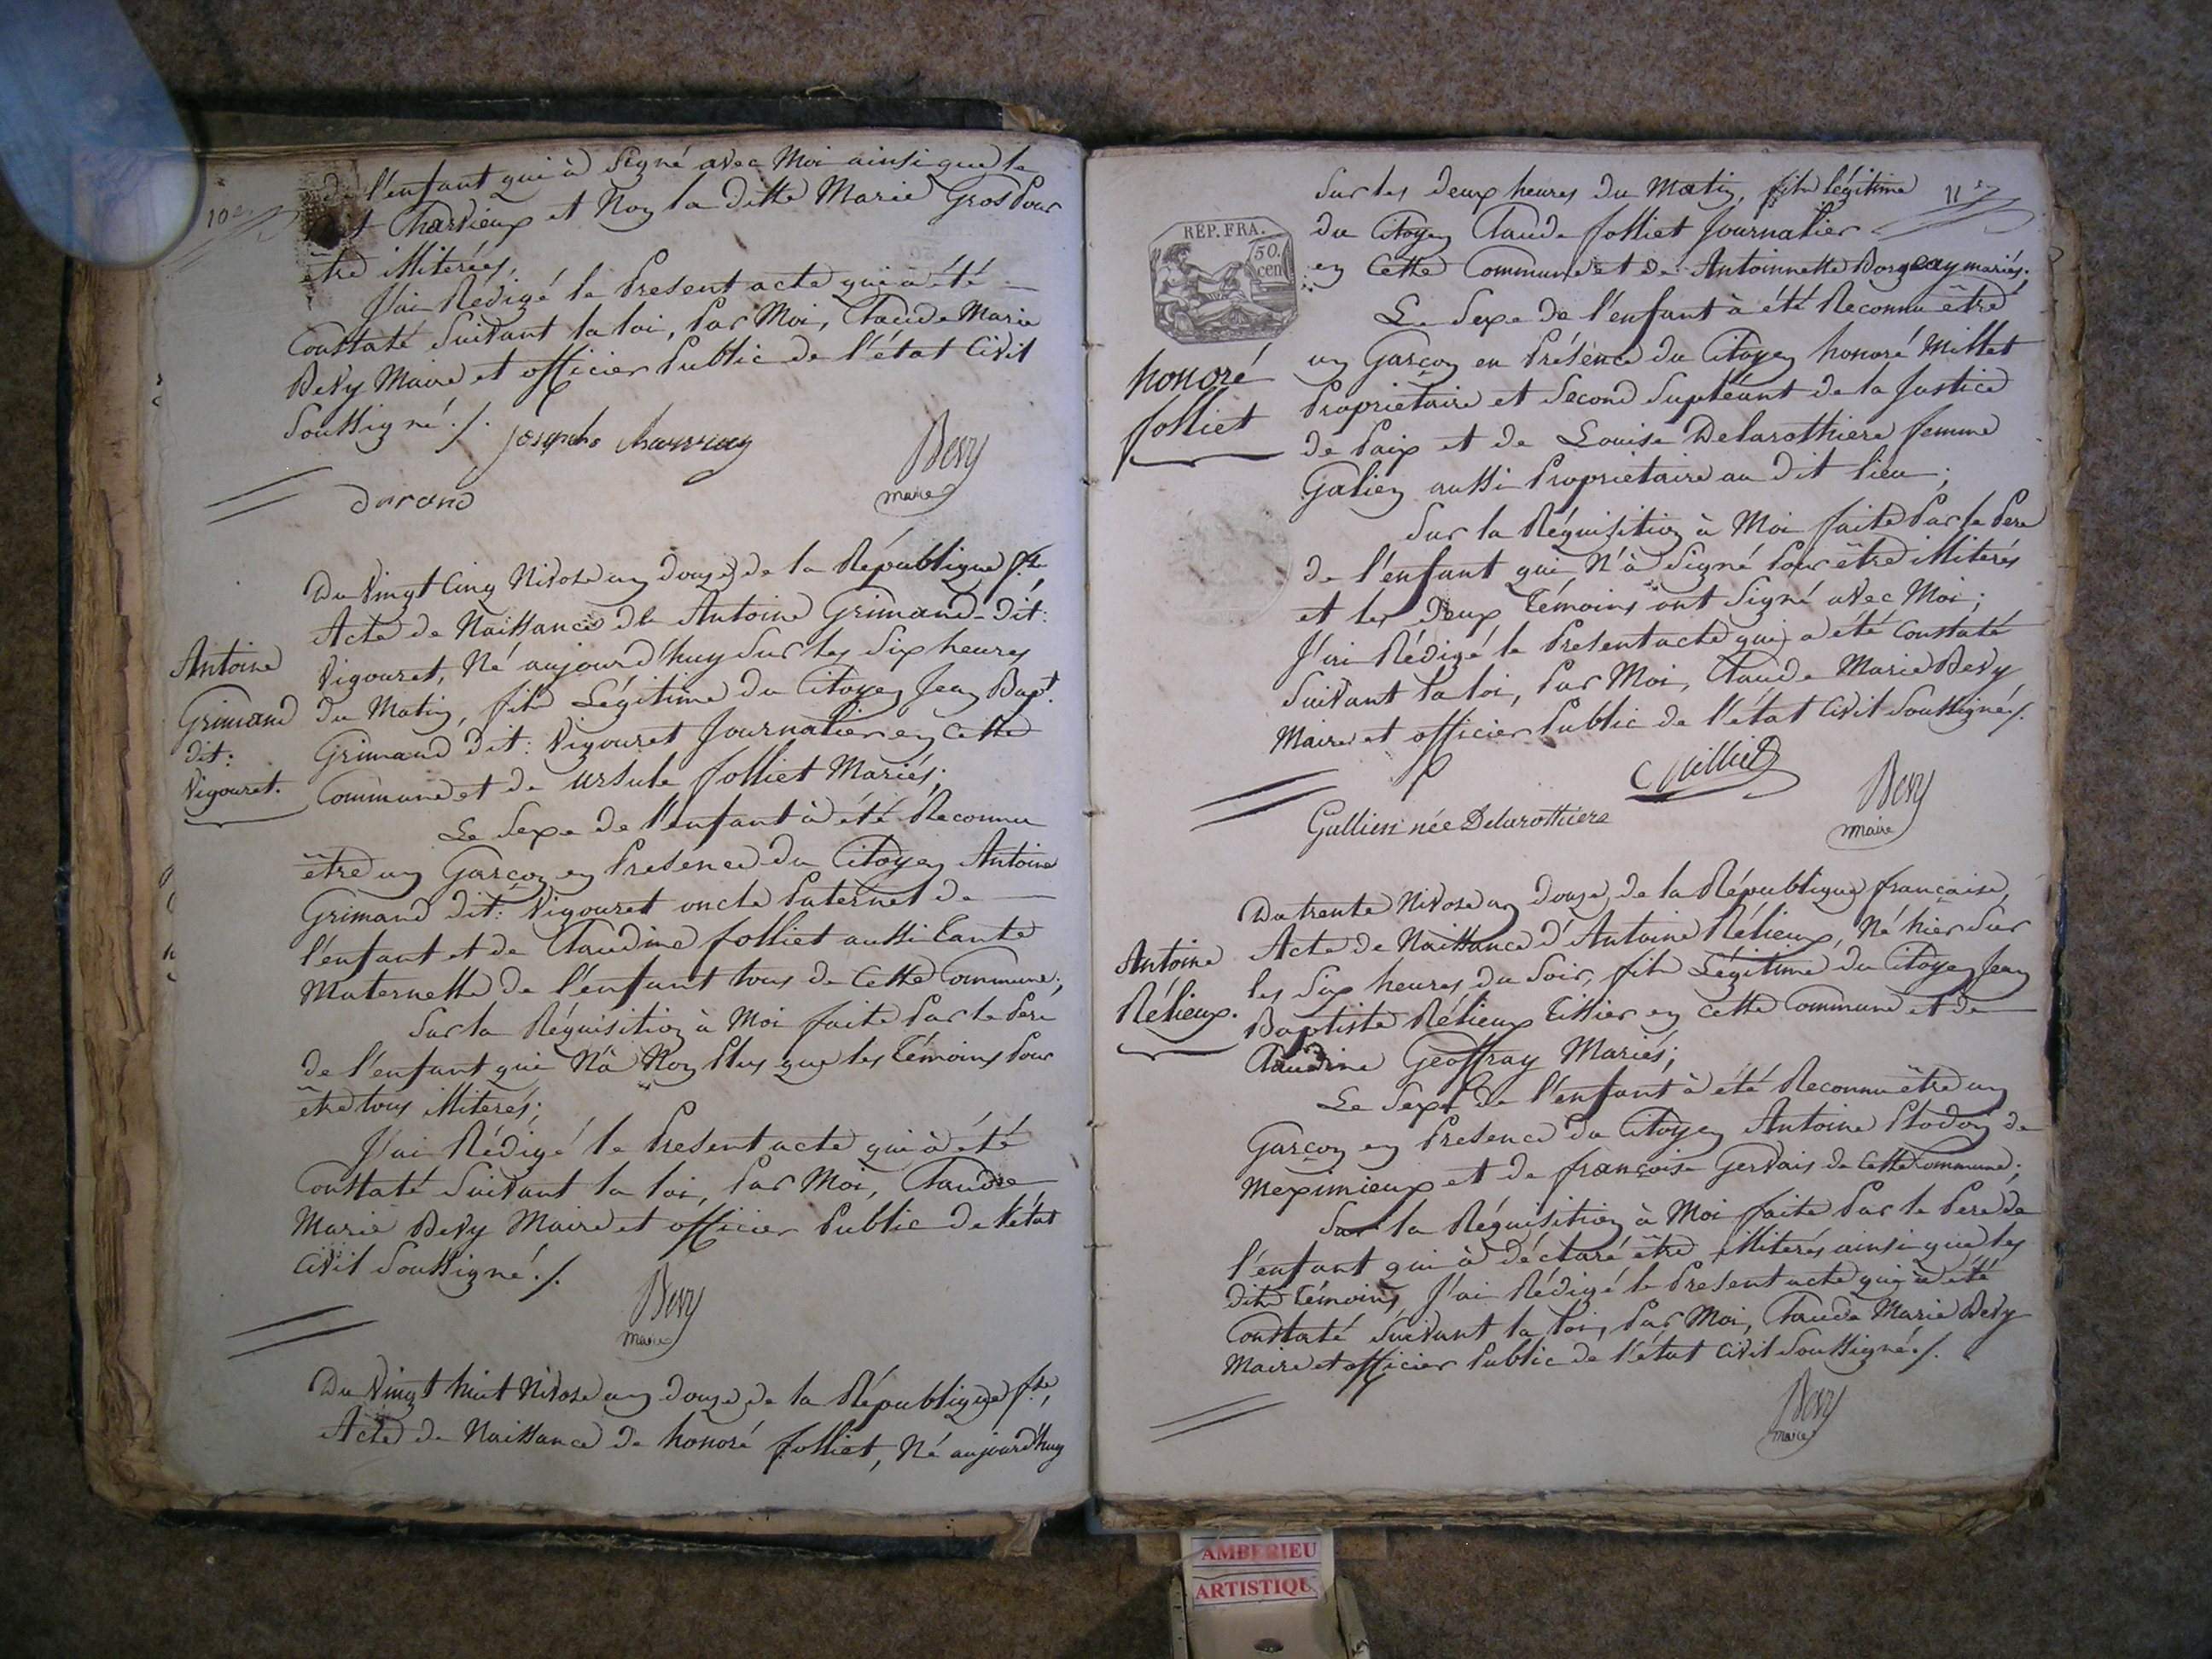 10e
de l'enfant qui à Signé avec Moi ainsi que le
dit Charvieux et Non la ditte Marie Gros Pour
être illiterées,
J'ai Rédigé le Present acte qui à été
Constaté Suivant la loi, Par Moi, Claude Marie
Bevy Maire et officier Public de l'état Civil
Soussigné ./.
Josephe Charvieux
Bevy
maire
Durand
Du Vingt Cinq Nivose an douze, de la République fse,
Acte de Naissance de Antoine Grimand - dit:
Vigouret, Né aujourd'huy Sur les Six heures
du Matin, fils Légitime du Citoyen Jean Bapt.
Grimand dit: Vigouret Journalier en Cette
Commune et de Ursule folliet Mariés;
Antoine
Grimand
dit:
Vigouret.
Le Sexe de l'enfant à été Reconnu
être un Garçon en Presence du Citoyen Antoine
Grimand dit: Vigouret oncle Paternel de
l'enfant et de Claudine folliet aussi tante
Maternelle de l'enfant tous de Cette Commune;
Sur la Réquisition à Moi faite Par le Pere
de l'enfant qui N'à Non Plus que les témoins Pour
être tous illiterés;
J'ai Rédigé le Present acte qui à été
Constaté Suivant la loi, Par Moi, Claude
Marie Bevy Maire et officier Public de l'état
Civil Soussigné ./.
Bevy
maire
Du Vingt huit Nivose an douze, de la République fse,
Acte de Naissance de honoré folliet, Né aujourd'huy
11e
Sur les deux heures du Matin, fils légitime
du Citoyen Claude folliet Journalier
en Cette Commune et de Antoinnette Borgeay mariés.
REP. FRA.
50.
cen
honoré
folliet
Le Sexe de l'enfant à été Reconnu être
un Garçon en Présence du Citoyen honoré Millet
Proprietaire et Second Supléant de la Justice
de Paix et de Louise Delarothiere femme
Galien aussi Proprietaire au dit lieu;
Sur la Réquisition à Moi faite Par le Pere
de l'enfant qui N'à Signé Pour être illiterés
et les deux témoins ont Signé avec Moi;
J'ai Rédigé le Present acte qui à été Constaté
Suivant la loi, Par Moi, Claude Marie Bevy
Maire et officier Public de l'état Civil Soussigné ./.
Bevy
maire
Gallien née Delarothiere
Du trente Nivose an douze, de la République française,
Acte de Naissance d'Antoine Rélieux, Né hier Sur
les Six heures du Soir, fils Légitime du Citoyen Jean
Baptiste Rélieux tissier en Cette Commune et de
Claudine Geoffray Mariés;
Antoine
Rélieux.
Le Sexe de l'enfant à été Reconnu être un
Garçon en Presence du Citoyen Antoine Plodon de
Meximieux et de françoise Gervais de Cette Commune;
Sur la Réquisition à Moi faite Par le Pere de
l'enfant qui à déclaré être illiterés ainsi que les
dits témoins, J'ai Rédigé le Present acte qui à été
Constaté Suivant la loi, Par Moi, Claude Marie Bevy
Maire et officier Public de l'état Civil Soussigné ./.
Bevy
maire
AMBERIEU
ARTISTIQU